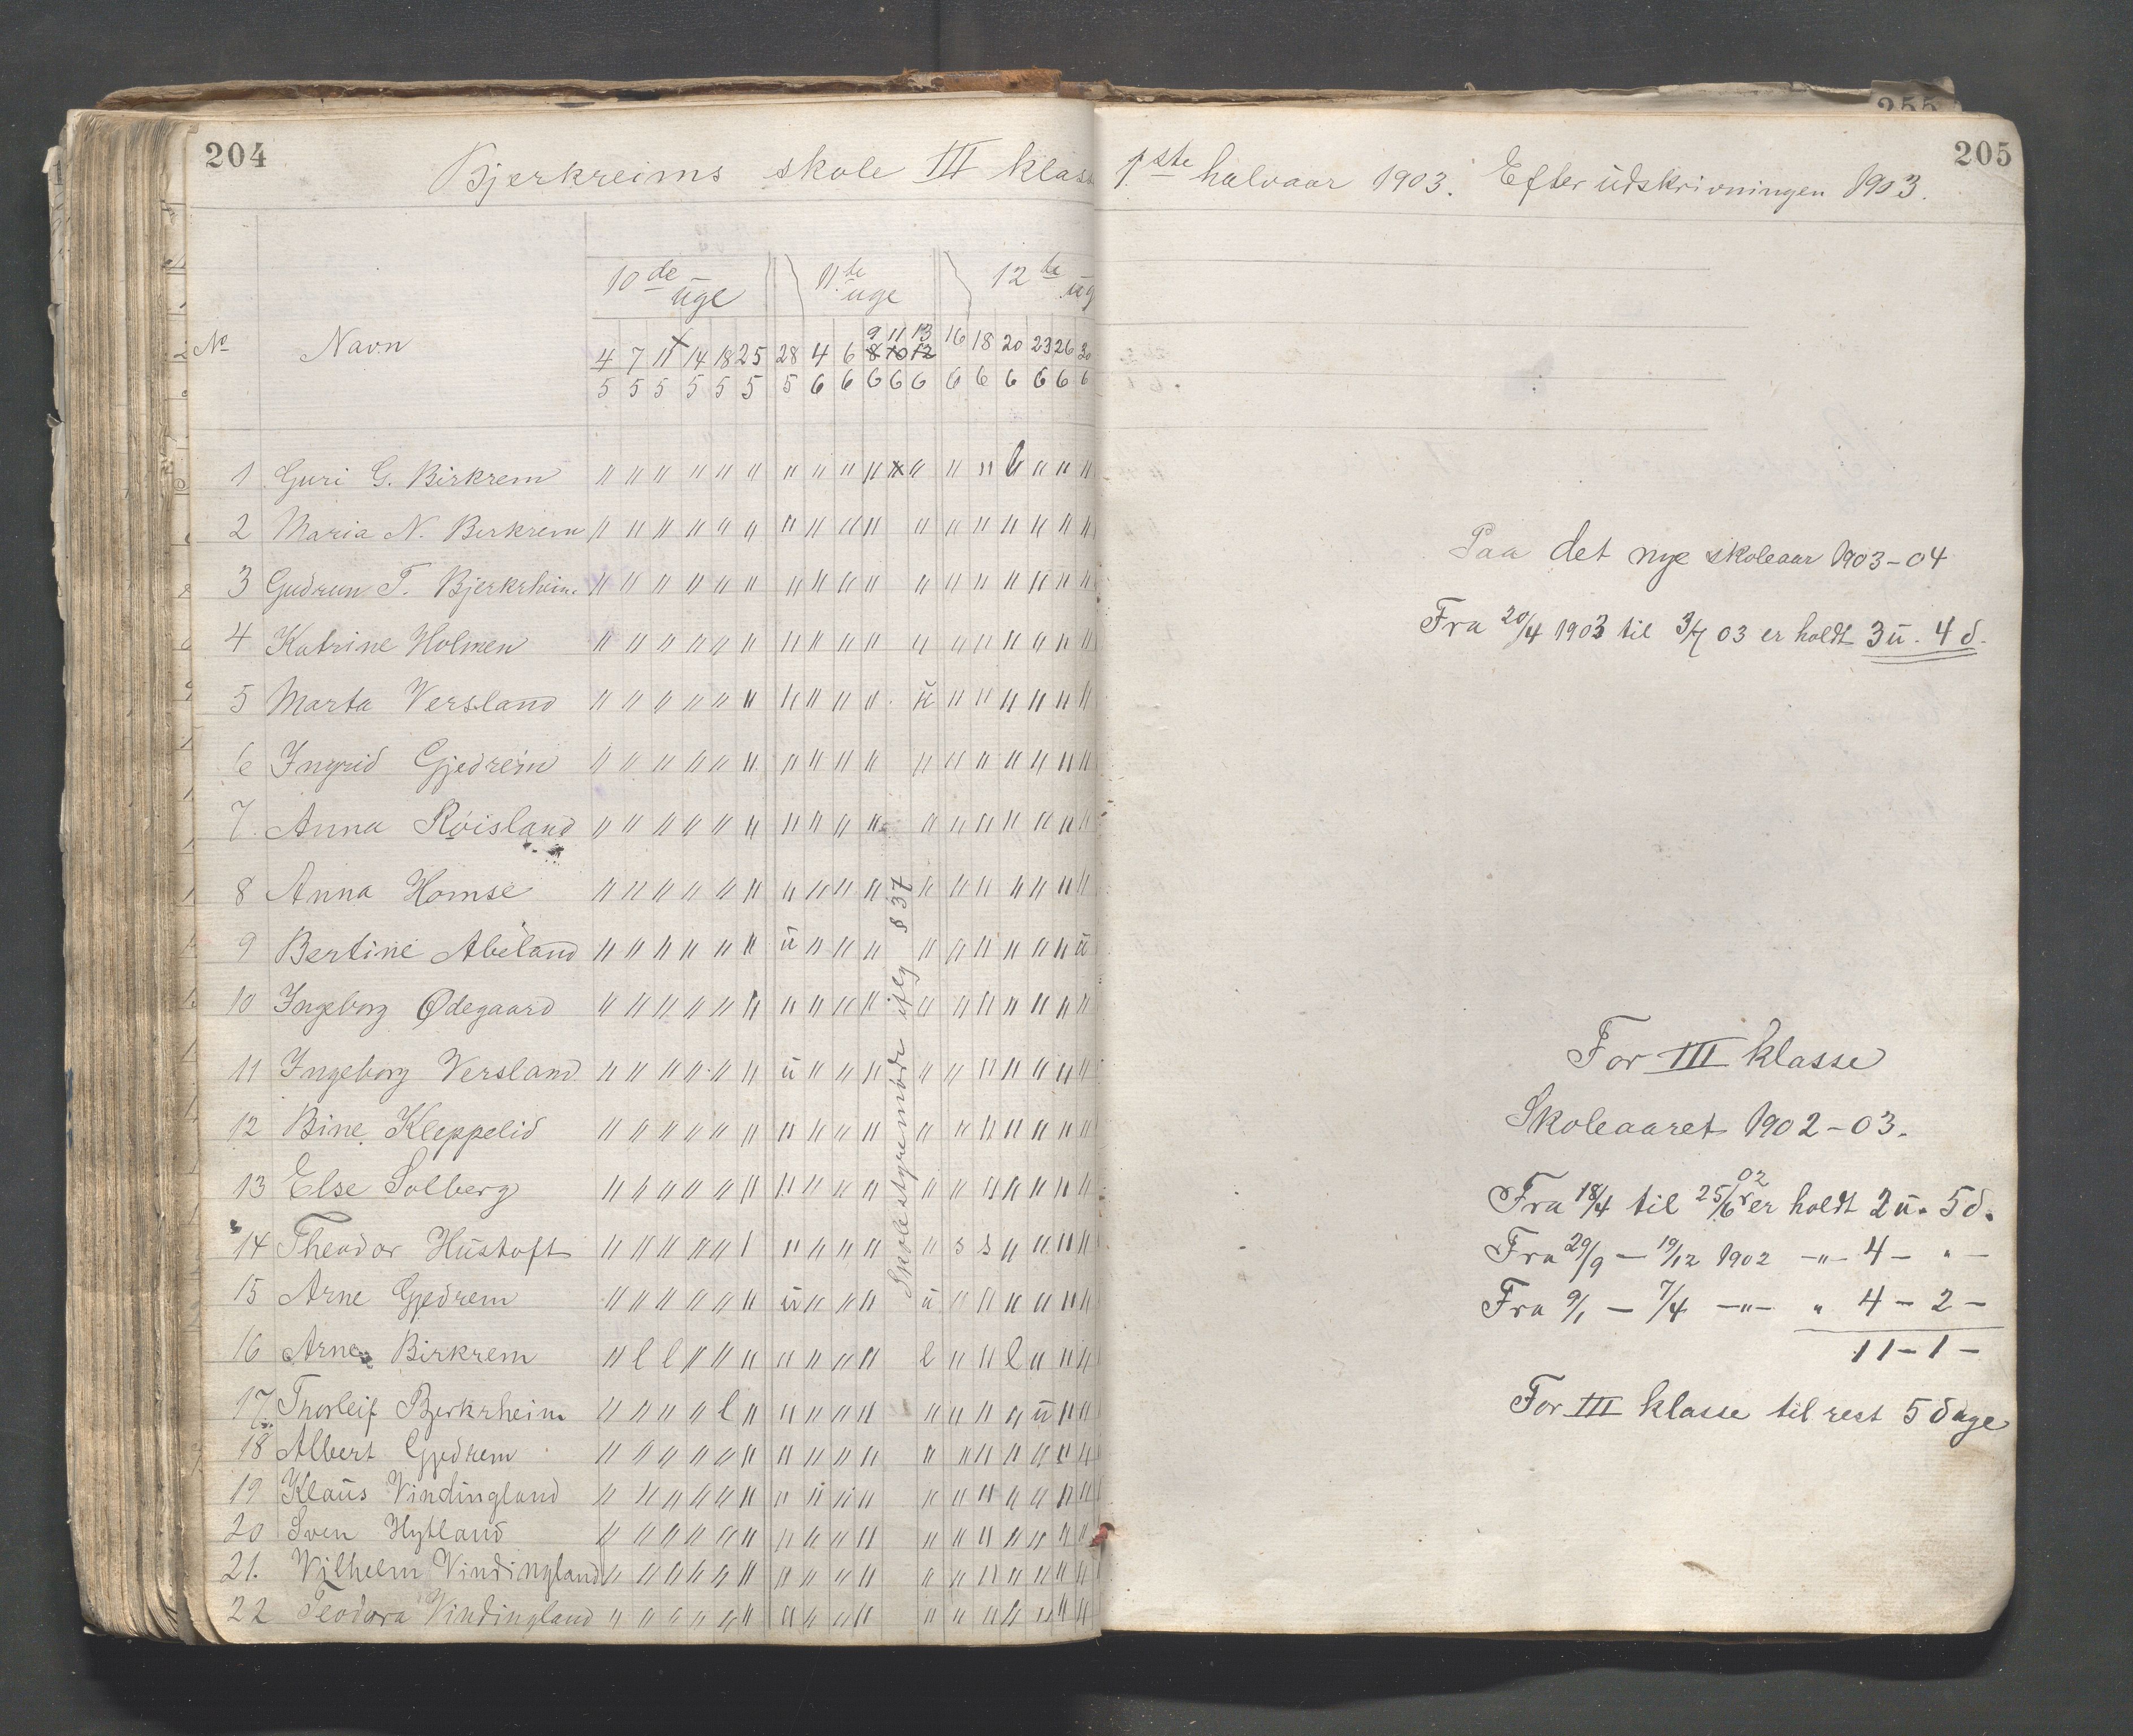 204
Bjerkreims skole III klass
10de uge 11te uge 12te ug
No Navn
9 11 13
4 7 11 14 18 25 28 4 6 8 10 12 16 18 20 23 26 30
5 5 5 5 5 5 5 6 6 6 6 6 6 6 6 6 6 6
1 Guri G. Birkrem
2 Maria N. Birkrem
3 Gudrun T. Bjerkrheim
4 Katrine Holmen
5 Marta Versland
6 Ingrid Gjedrem
7. Anna Røisland
8 Anna Homse
9 Bertine Abeland
10 Ingeborg Ødegaard
11 Ingeborg Versland
12 Bine Kleppelid
13 Else Solberg
14 Theodor Hustoft
15 Arne Gjedrem
16 Arne Birkrem
17 Thorleif Bjerkrheim
18 Albert Gjedrem
19 Klaus Vindingland
20 Sven Hytland
21. Vilhelm Vindingland
22 Teodora Vindingland
Skolestyremøde iflg § 37
205
1ste halvaar 1903. Efter udskrivningen 1903.
Paa det nye skoleaar 1903-04
Fra 20/4 1903 til 3/7 03 er holdt 3 u. 4 d.
For III klasse
Skoleaaret 1902-03.
Fra 18/4 til 25/6 02 er holdt 2 u. 5 d.
Fra 29/9 - 19/12 1902 -"- 4 - " -
Fra 9/1 - 7/4 -"- " 4 - 2 -
11 - 1 -
For III klasse til rest 5 dage
255